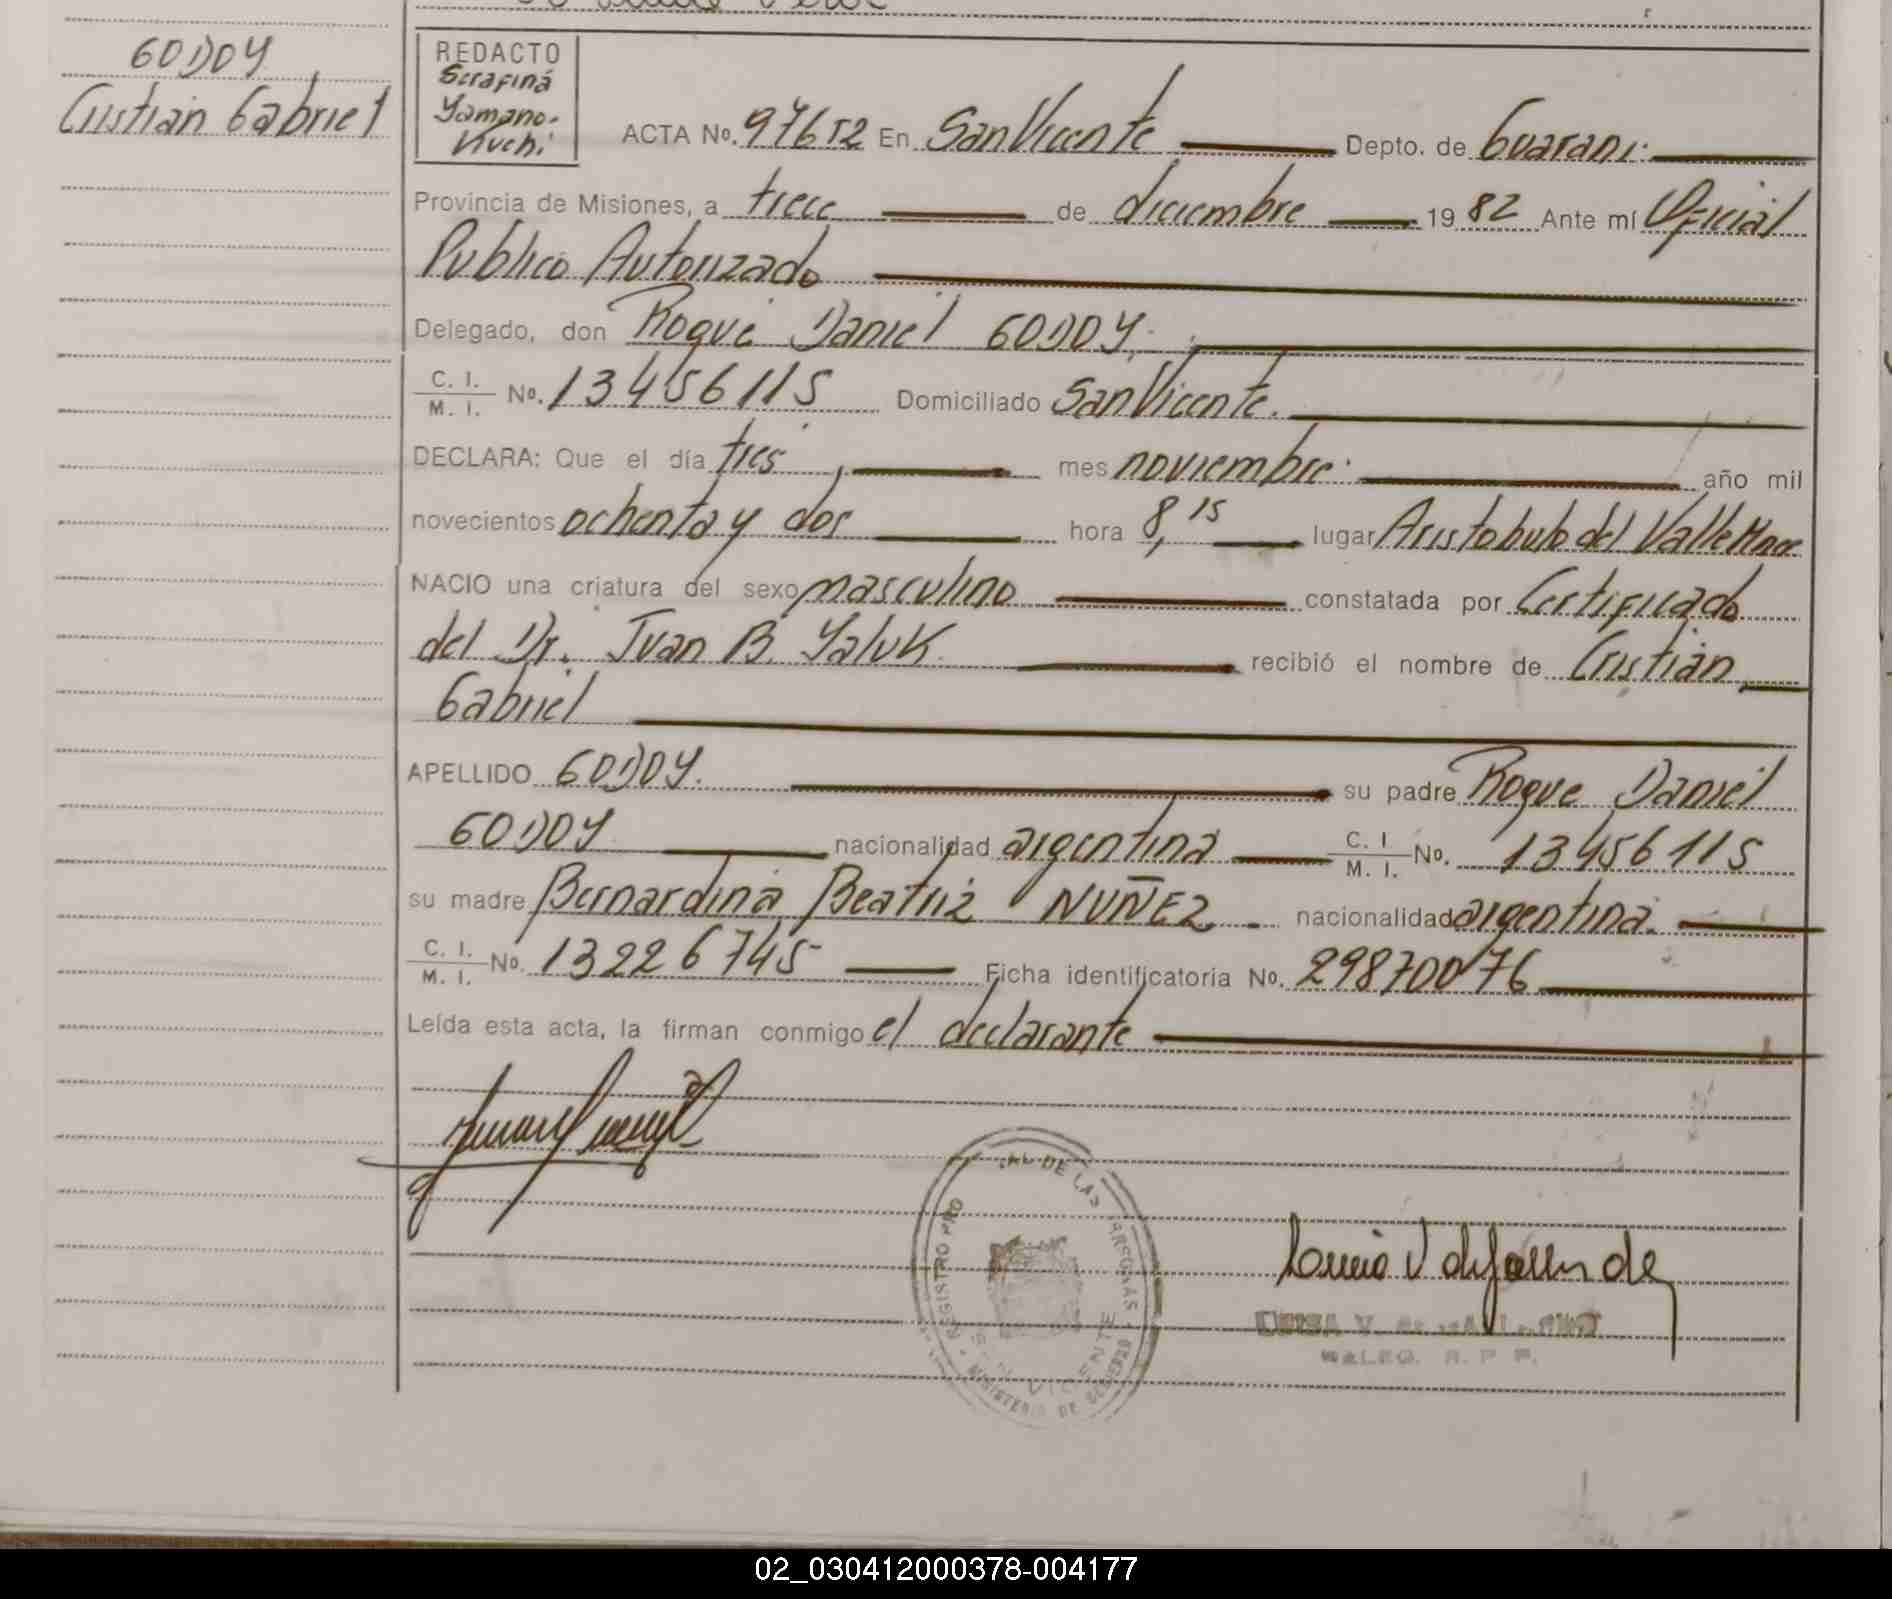 GODOY
Cristian Gabriel
REDACTO
Serafina
Yamano-
Kuchi
ACTA No. 97652 En San Vicente Depto. de Guarani
Provincia de Misiones, a trece de diciembre 1982 Ante mí Oficial
Publico Autorizado
Delegado, don Roque Daniel GODOY
C. I. / M. I. No. 13456115 Domiciliado San Vicente.
DECLARA: Que el día tres mes noviembre año mil
novecientos ochenta y dos hora 8,15 lugar Aristobulo del Valle
NACIO una criatura del sexo masculino constatada por Certificado
del Dr. Juan B. Yaluk recibió el nombre de Cristian
Gabriel
APELLIDO GODOY. su padre Roque Daniel
GODOY nacionalidad argentina C. I / M. I. No. 13456115
su madre Bernardina Beatriz NUÑEZ nacionalidad argentina.
C. I. / M. I. No. 13226745 Ficha identificatoria No. 29870076
Leída esta acta, la firman conmigo el declarante
REGISTRO PRO DE LAS PERSONAS
SAN VICENTE
MINISTERIO DE GOBIERNO
02_030412000378-004177